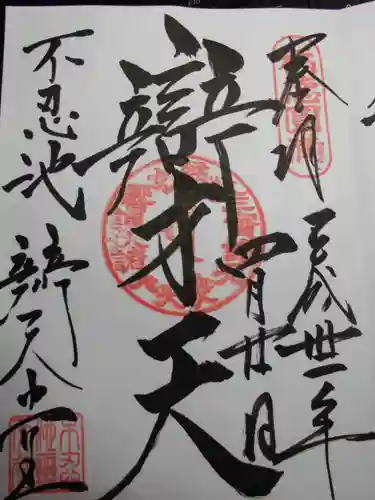 奉拝
平成卅一年
四月廿日
辯才天
不忍池
辯天堂